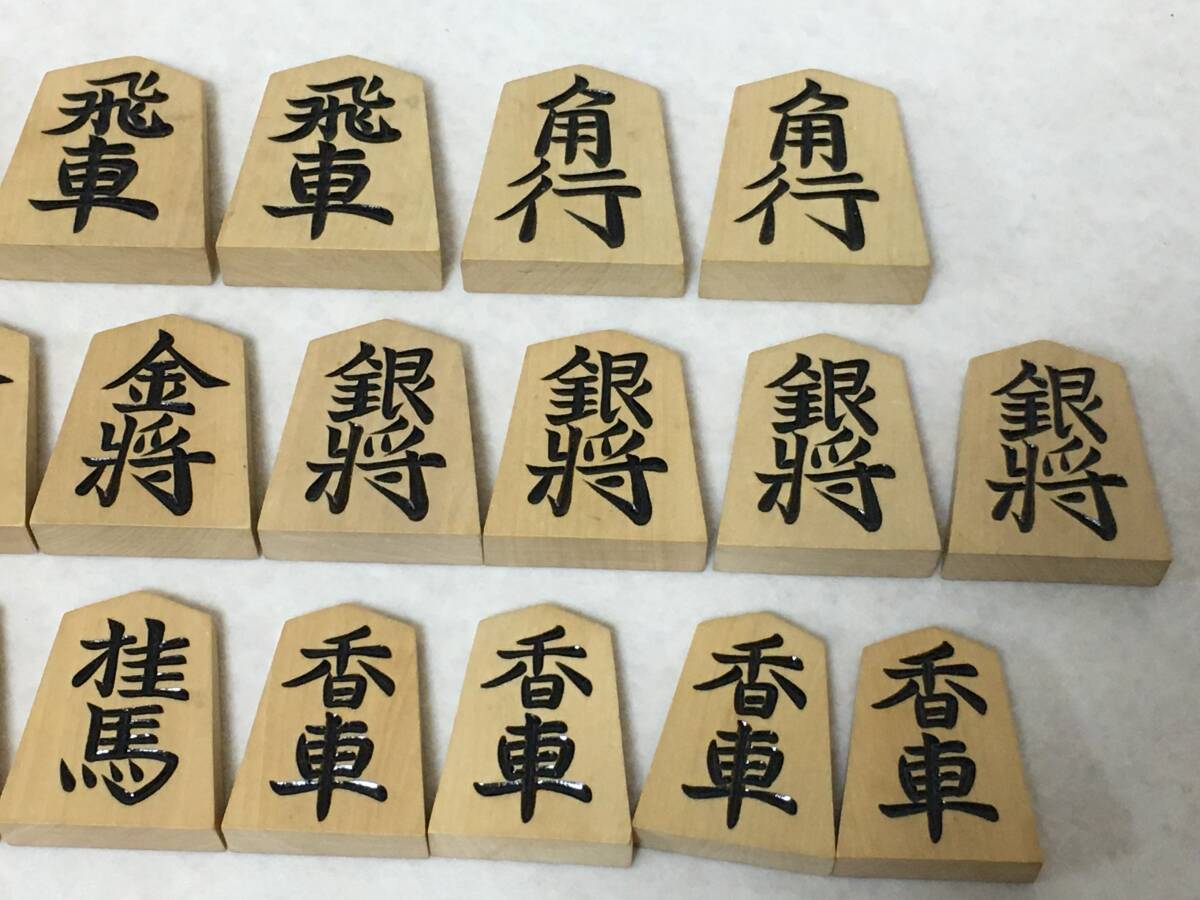 飛車 飛車 角行 角行
金将 銀将 銀将 銀将 銀将
桂馬 香車 香車 香車 香車